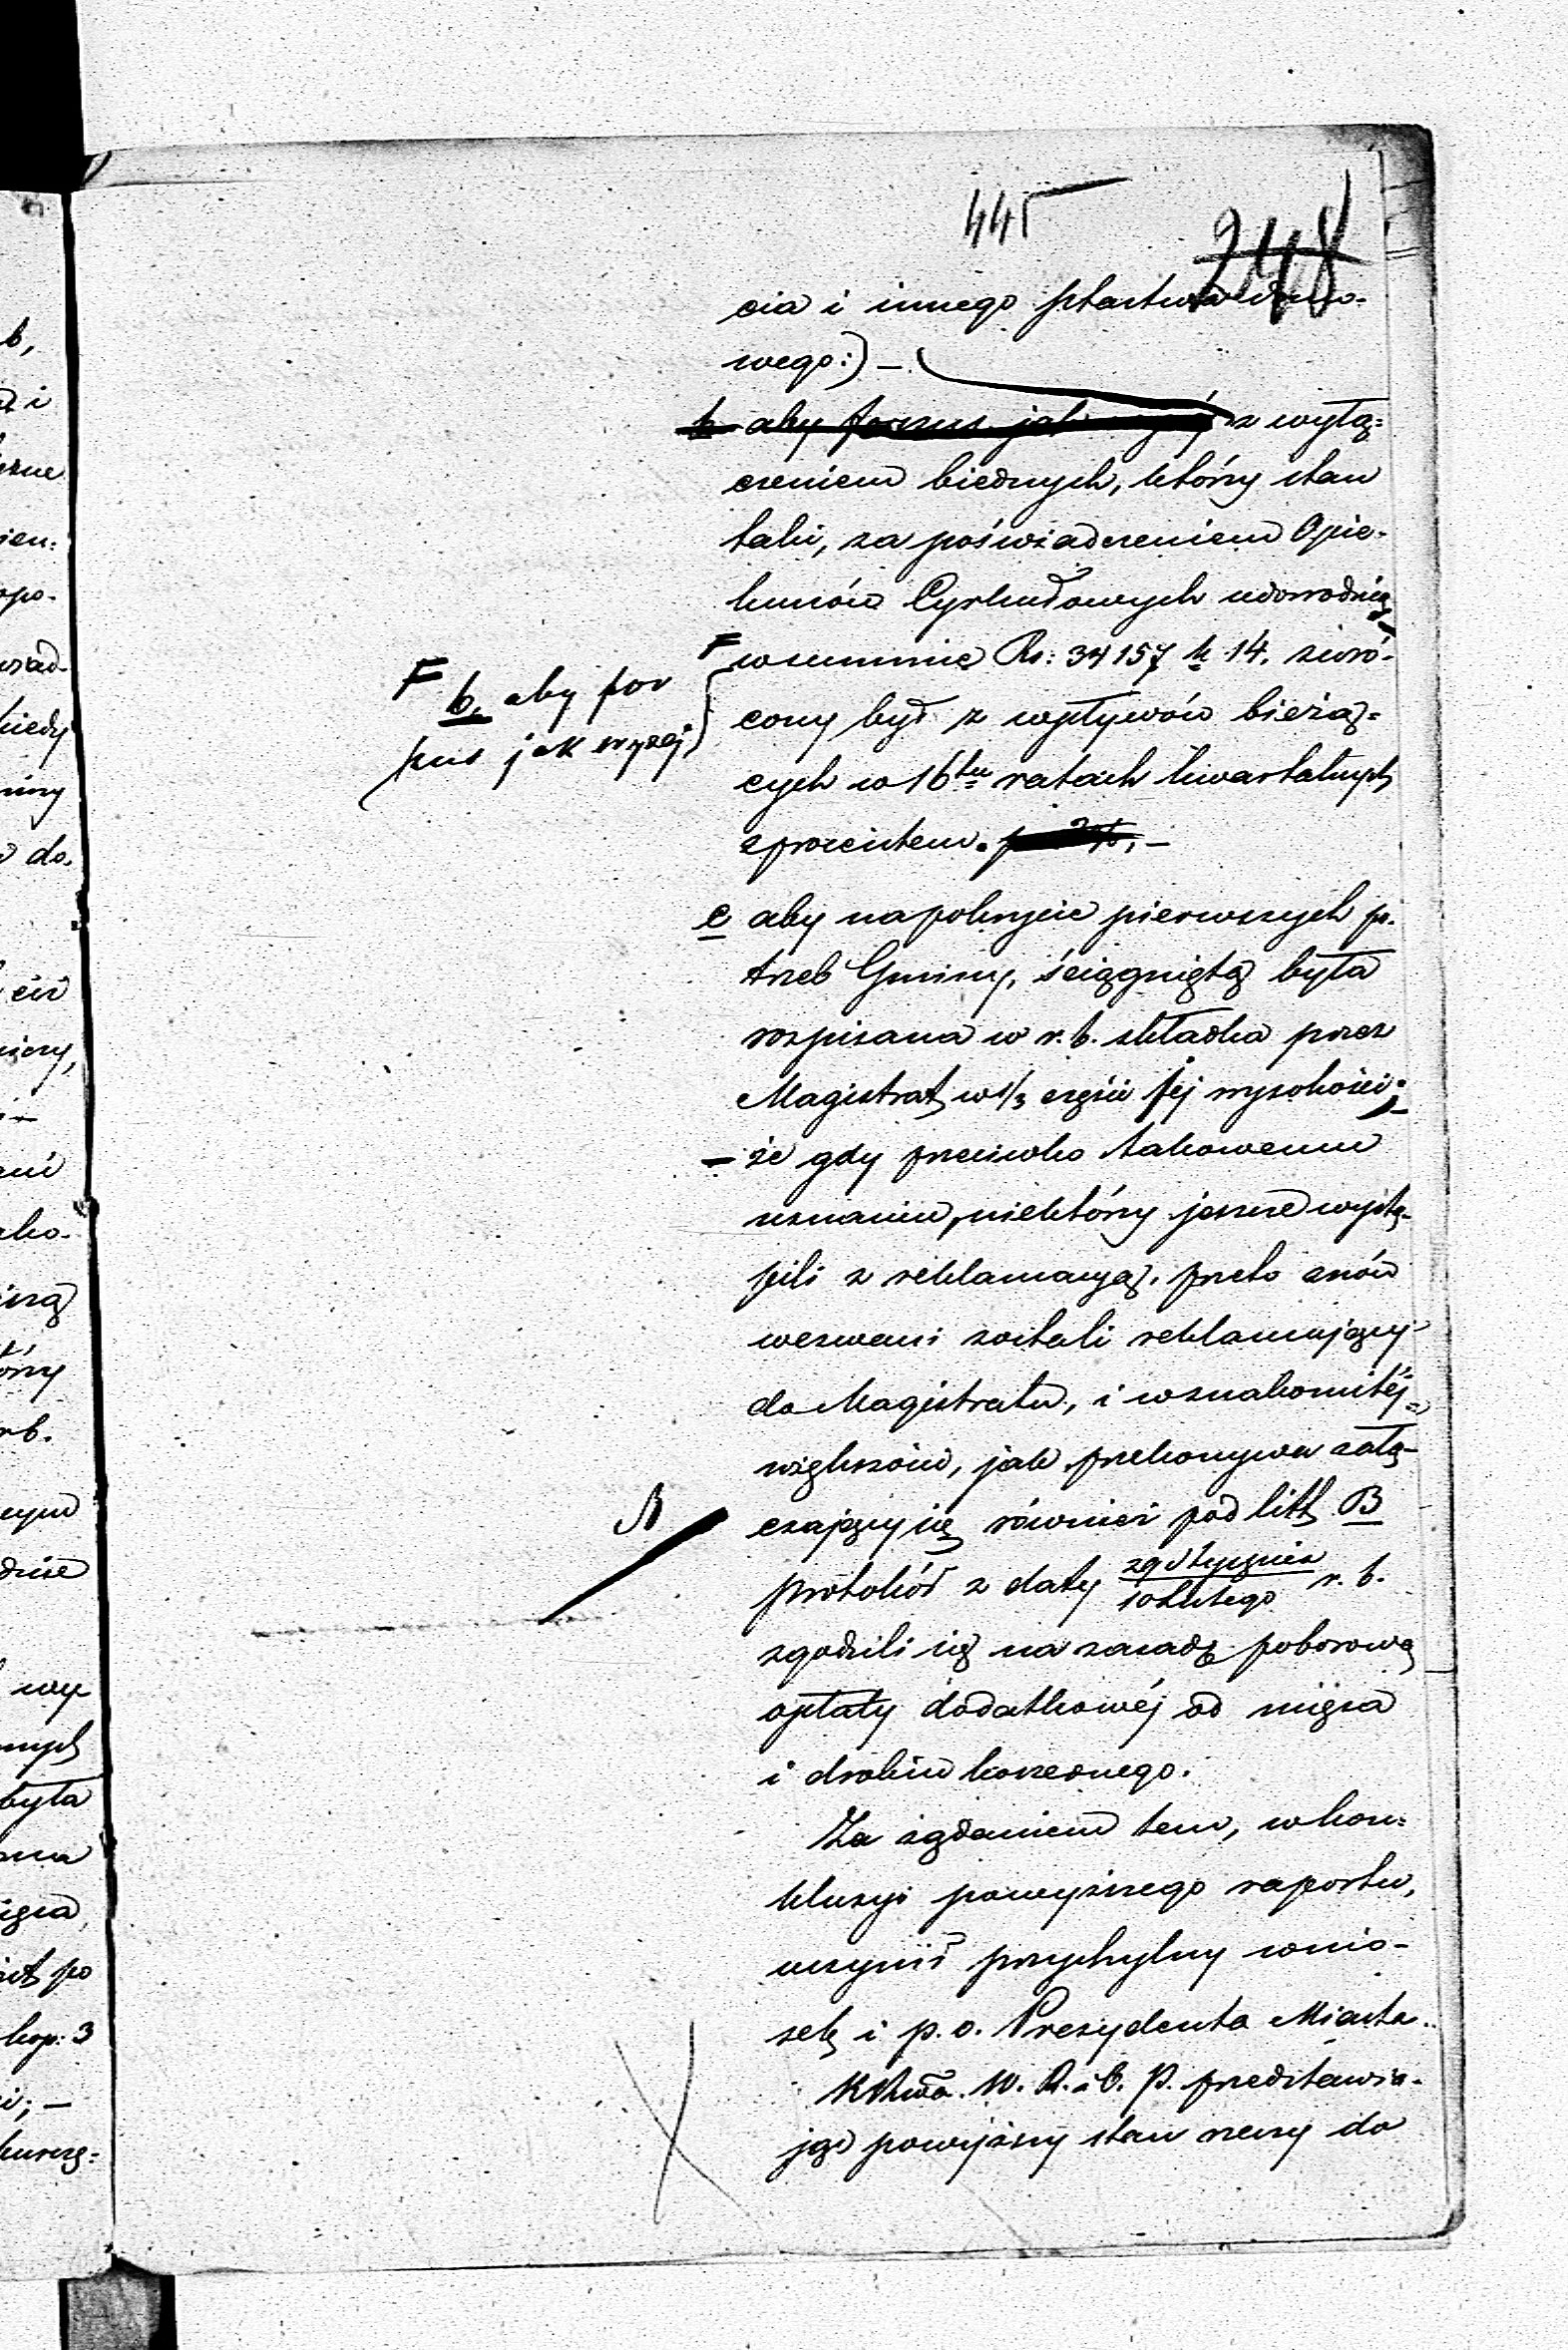 445
248
cia i innego ptactwa domo-
wego:) —
b aby forszus jak wyżéj z wyłą-
czeniem biednych, którzy stan
taki, za poświadczeniem Opie-
kunów Cyrkułowych udowodnią,
F w summie Rs: 34157 k 14. zwró-
cony był z wpływów bieżą-
cych w 16tu ratach kwartalnych
z procentem.
F b, aby for
szus jak wyżej
c aby na pokrycie pierwszych po-
trzeb Gminy, ściągniętą była
rozpisana w r. b. składka przez
Magistrat w 1/3 części jej wysokości; —
— że gdy przeciwko takowemu
uznaniu, niektórzy jeszcze wystą-
pili z reklamacyą, przeto znów
wezwani zostali reklamujący
do Magistratu, i w znakomitéj
większości, jak przekonywa załą-
czający się również pod litt B
protokół z daty 29 Stycznia / 10 Lutego r. b.
zgodzili się na zasadę poborową
opłaty dodatkowéj od mięsa
i drobiu koszernego.
Za żądaniem tem, w kon-
kluzyi powyższego raportu,
uczynił przychylny wnio-
sek i p. o. Prezydenta Miasta.
K Rząwa. W. R. i O. P. przedstawia-
jąc powyższy stan rzeczy do
B